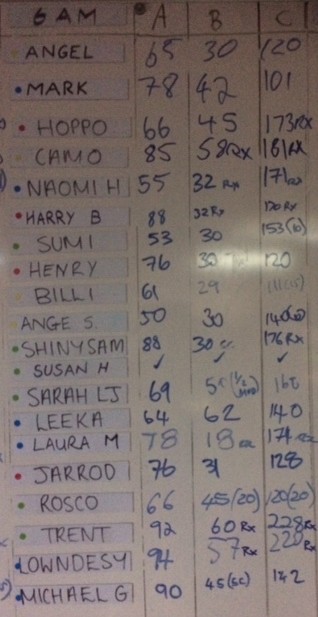 6 AM A B C
ANGEL 65 30 120
MARK 78 42 101
HOPPO 66 45 173RX
CAMO 85 58RX 161RX
NAOMI H 55 32 Rx 171RX
HARRY B 88 32Rx 170 Rx
SUMI 53 30 153(6)
HENRY 76 30 120
BILLI 61 29
ANGE S. 50 30
SHINYSAM 88 30 176 Rx
SUSAN H ✓ ✓ ✓
SARAH LJ 69
LEEKA 64 62 140
LAURA M 78 18 174
JARROD 76 31 128
ROSCO 66 45(20) 120(20)
TRENT 92 60 Rx 228Rx
LOWNDESY 94 57 Rx 220Rx
MICHAEL G 90 142